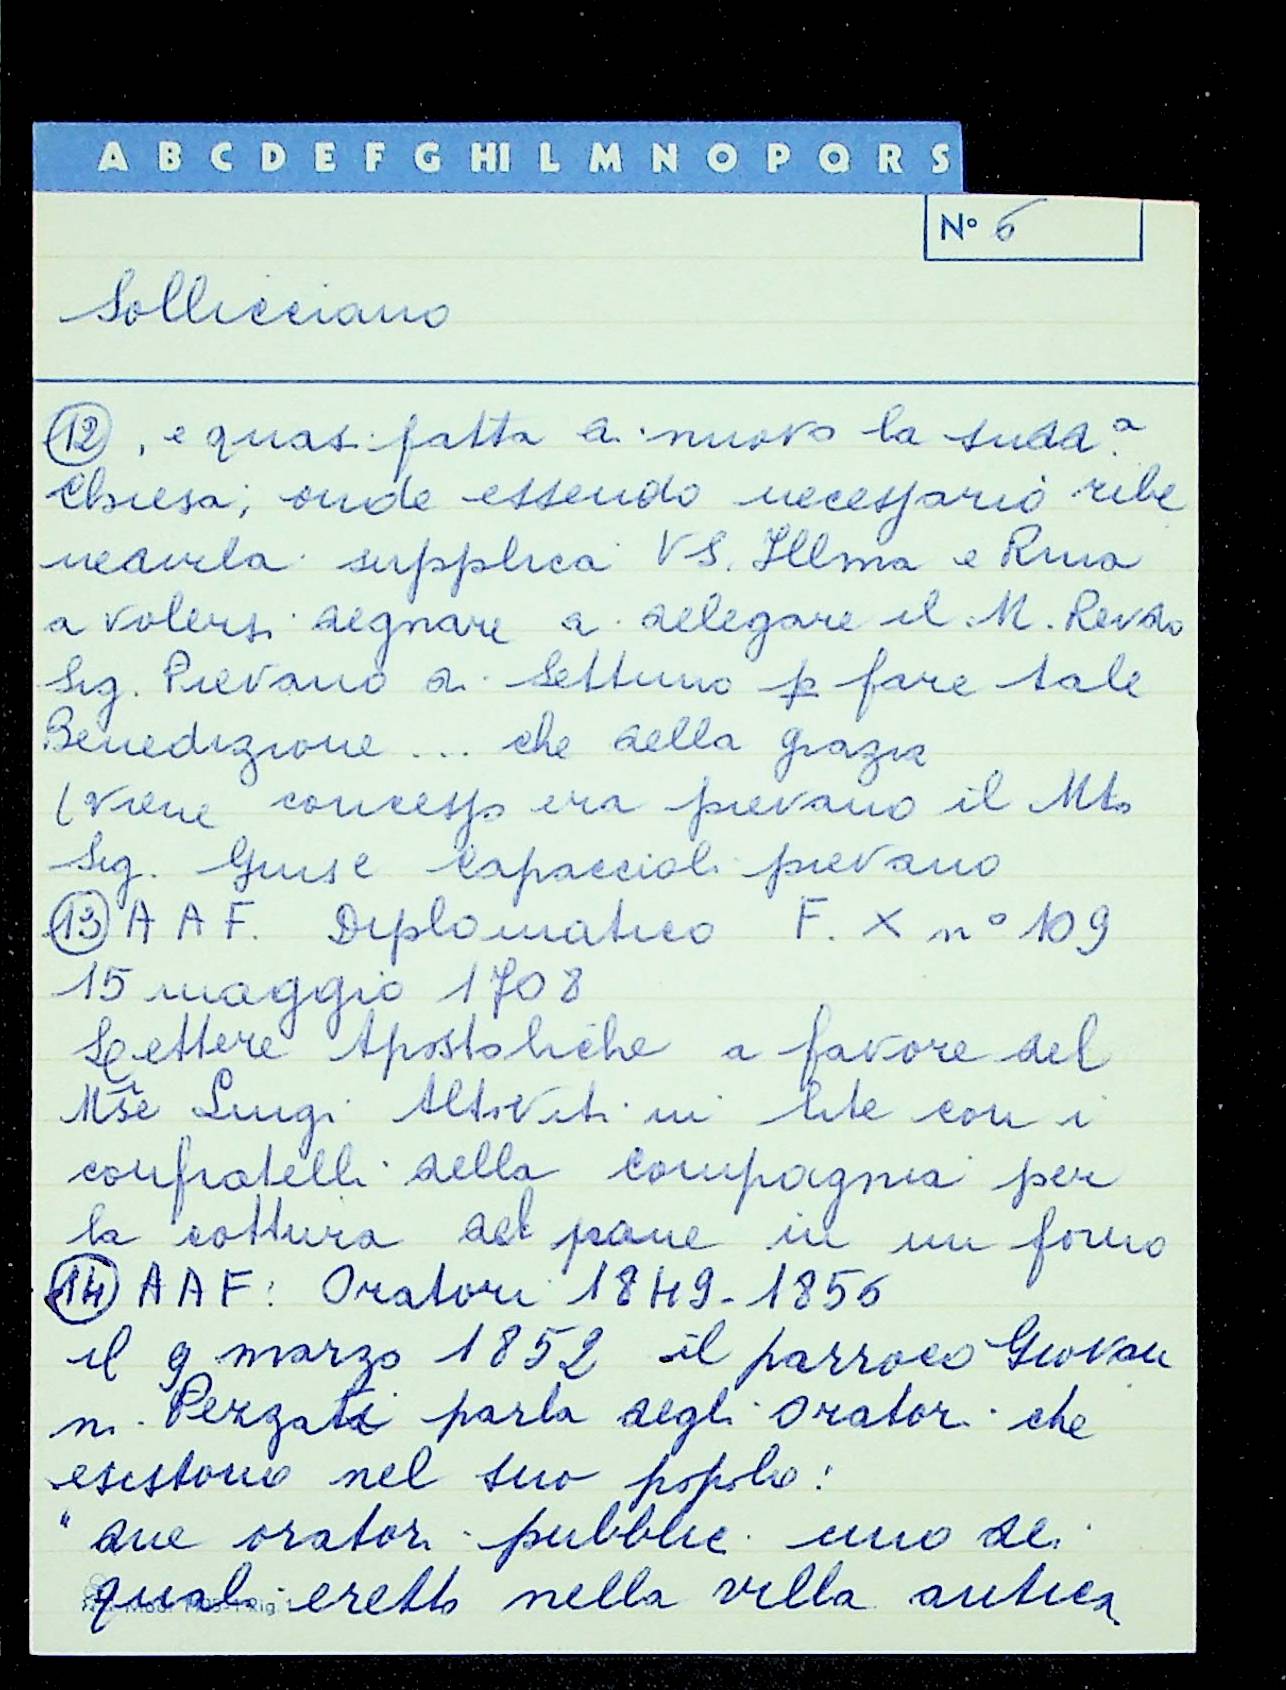 A B C D E F G HI L M N O P Q R S
N° 6
Sollicciano
(12), e quasi fatta di nuovo la sudd.ª
Chiesa; onde essendo necessario ribe
nedirla supplica VS. Illma e Rma
a volersi degnare di delegare il M. Revdo
Sig. Pievano di Settimo p fare tale
Benedizione ... che della grazia
(viene concesso era pievano il Mto
Sig. Gius e Capaccioli pievano
(13) A A F. Diplomatico F. X n° 109
15 maggio 1708
Lettere Apostoliche a favore del
Mse Luigi Altoviti in lite con i
confratelli della Compagnia per
la cottura del pane in un forno
(14) A A F: Oratori 1849-1856
il 9 marzo 1852 il parroco Giovan
ni Pezzati parla degli oratori che
esistono nel suo popolo:
" due oratori pubblici uno dei
quali eretto nella villa antica